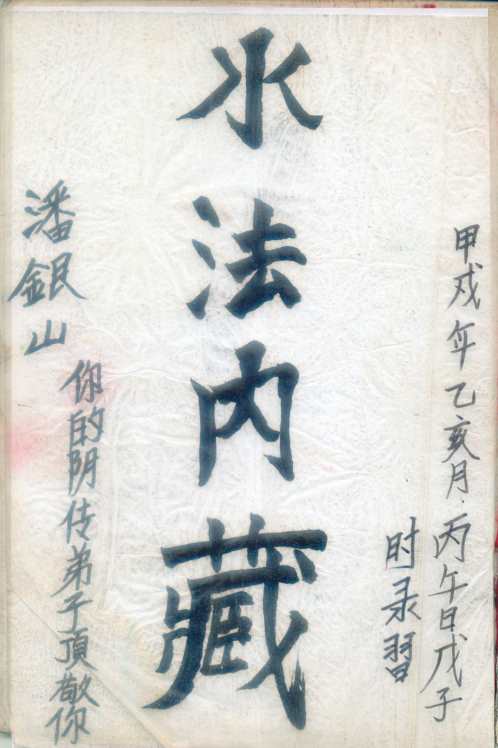 甲戌年乙亥月.丙午日戊子
时录習
水法内藏
潘銀山
你的阴传弟子頂敬你